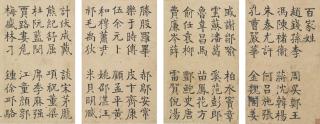 百家姓
趙錢孫李 周吳鄭王
馮陳褚衛 蔣沈韓楊
朱秦尤許 何呂施張
孔曹嚴華 金魏陶姜
戚謝鄒喻 柏水竇章
雲蘇潘葛 奚范彭郎
魯韋昌馬 苗鳳花方
俞任袁柳 酆鮑史唐
費廉岑薛 雷賀倪湯
滕殷羅畢 郝鄔安常
樂于時傅 皮卞齊康
伍余元卜 顧孟平黃
和穆蕭尹 姚邵湛汪
祁毛禹狄 米貝明臧
計伏成戴 談宋茅龐
熊紀舒屈 項祝董梁
杜阮藍閔 席季麻強
賈路婁危 江童顏郭
梅盛林刁 鍾徐邱駱